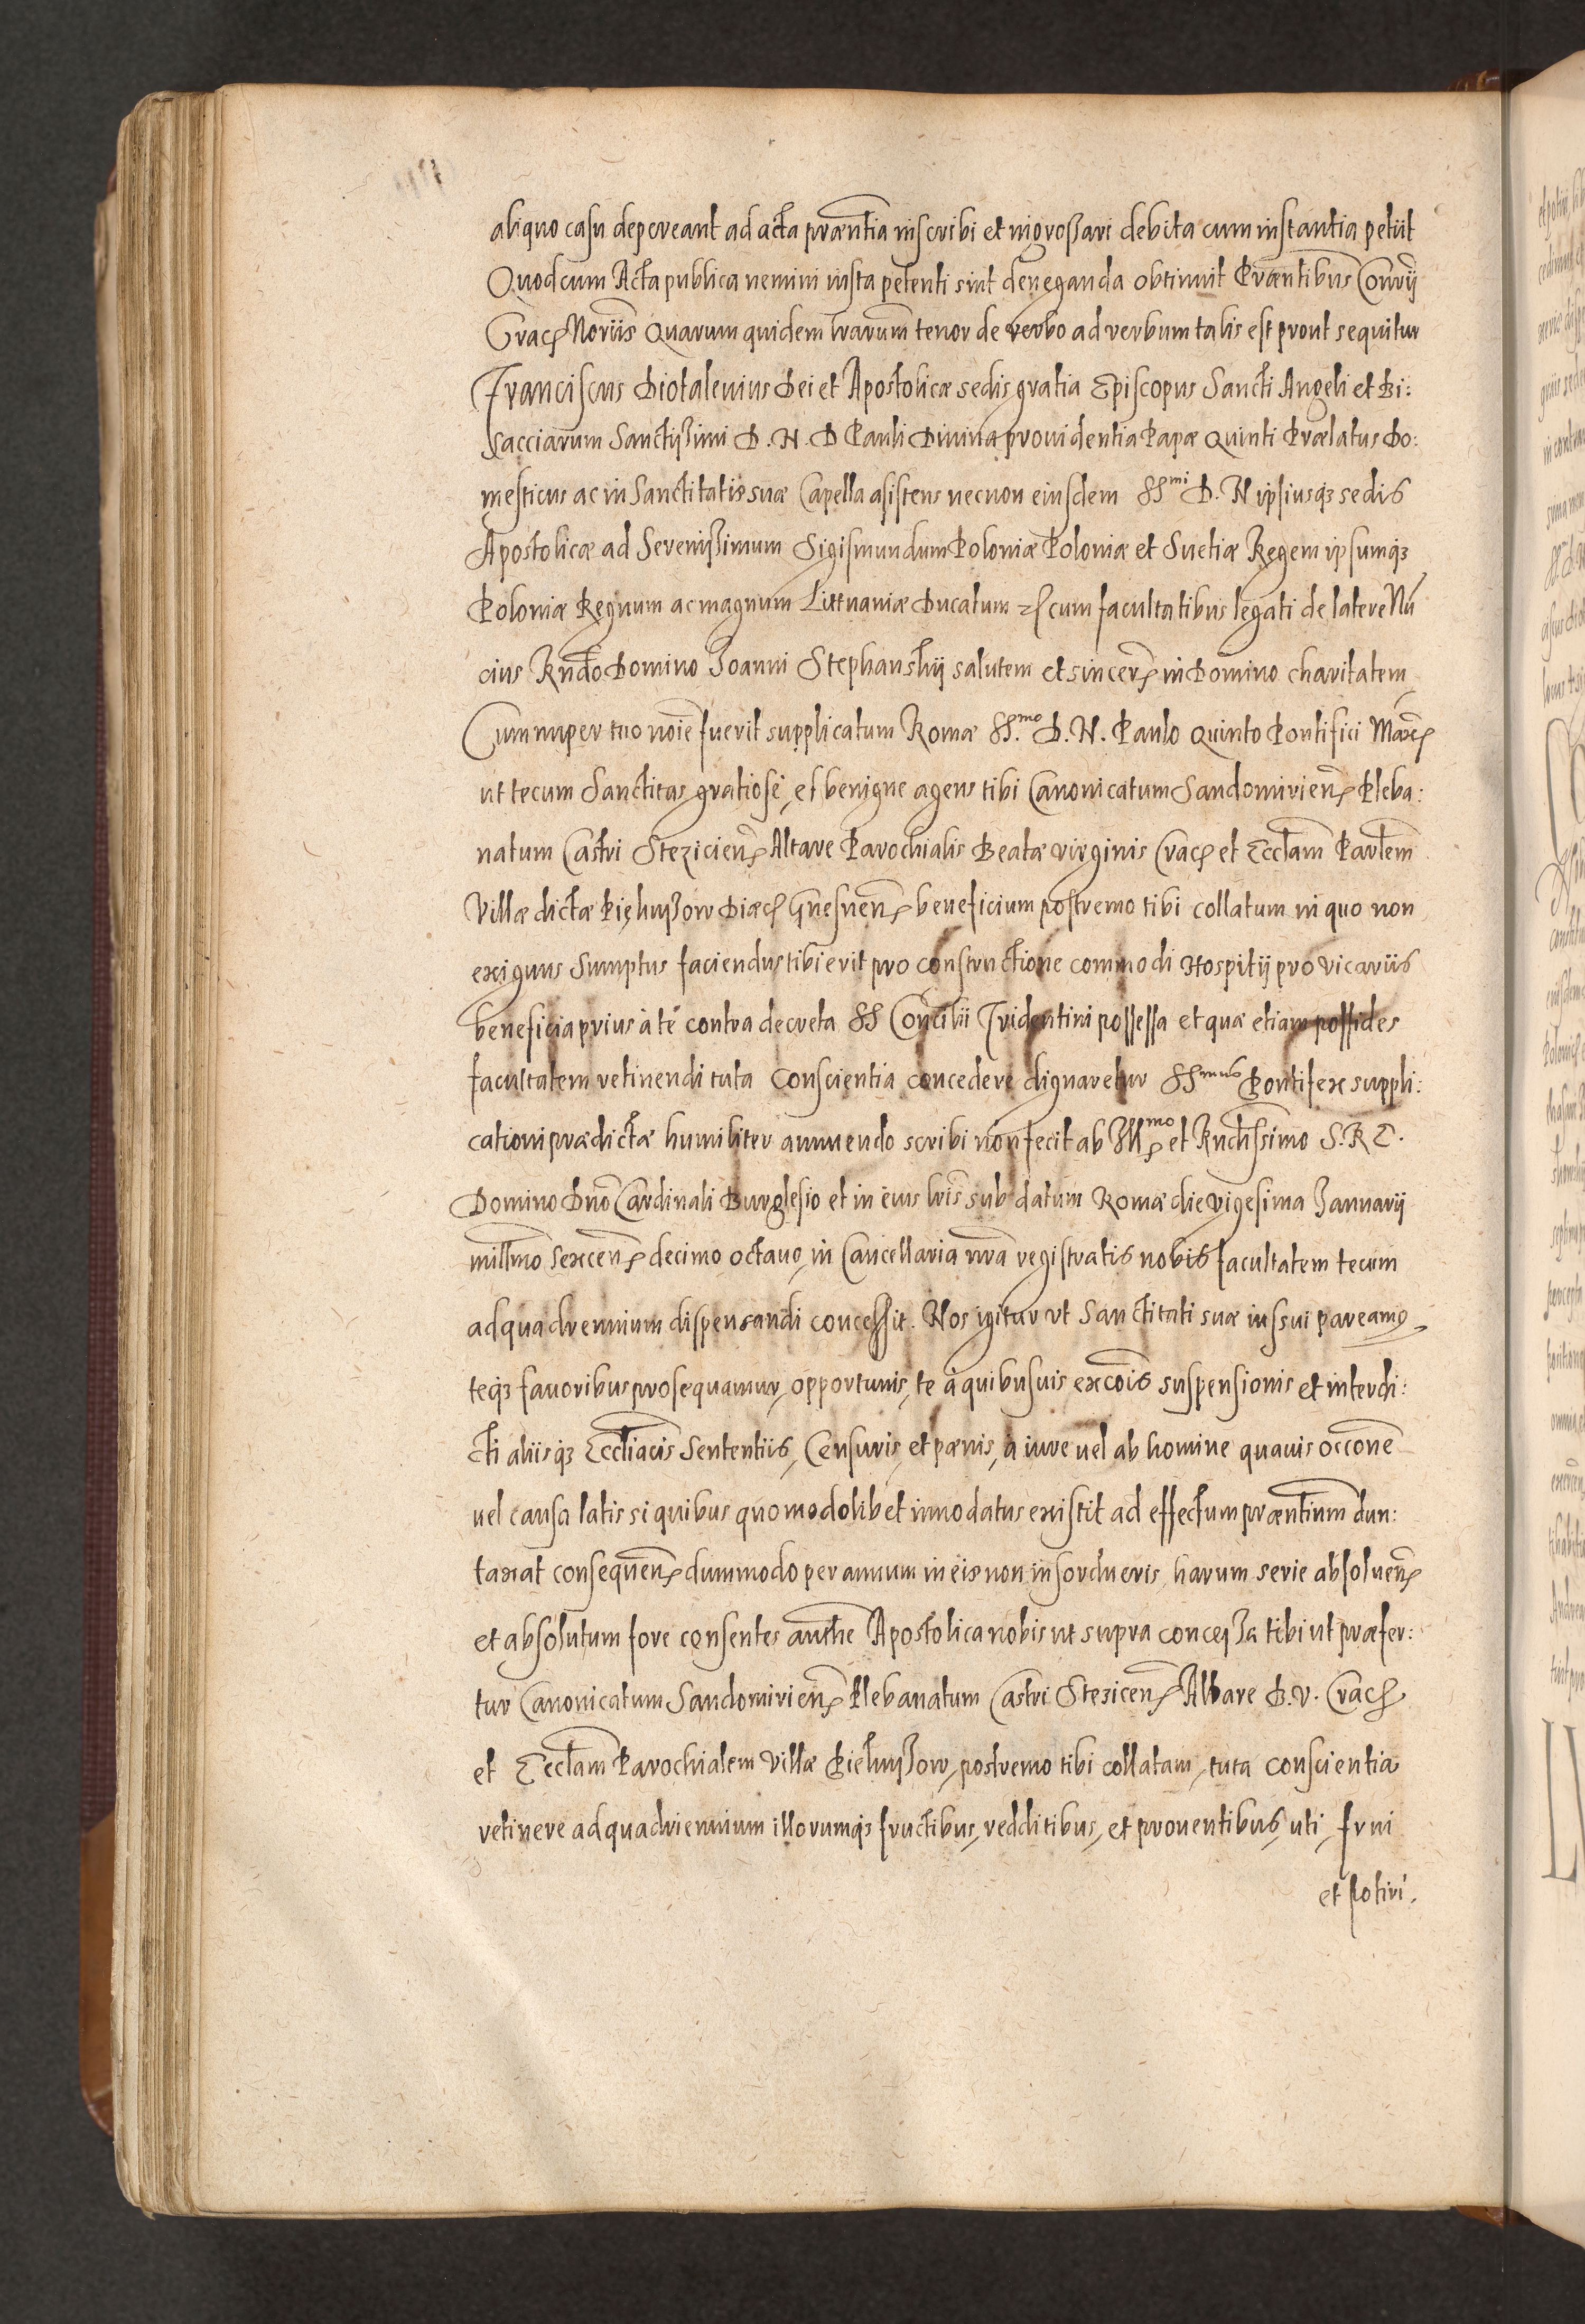 aliquo casu depereant ad acta præntia inscribi et ingrossari debita cum instantia petiit
Quod cum Acta publica nemini iusta petenti sint deneganda obtinuit Præntibus Consrÿ
Crac Noriis Quarum quidem lrarum tenor de verbo ad verbum talis est prout sequitur
Franciscus Diotalenius Dei et Apostolicæ sedis gratia Episcopus Sancti Angeli et Bi:
sacciarum Sanctissimi D. N. D Pauli Diuina prouidentia Papæ Quinti Prælatus Do:
mesticus ac in Sanctitatis suæ Capella asistens necnon eiusdem SSmi D. N ipsiusqз sedis
Apostolicæ ad Serenissimum Sigismundum Poloniæ Poloniæ et Suetiæ Regem ipsumqз
Poloniæ Regnum ac magnum Littuaniæ Ducatum cum facultatibus legati de latere Nũ
cius Rndo Domino Joanni Stephanskij salutem et sincer in Domino charitatem
Cum nuper tuo noie fuerit supplicatum Romæ SS.mo D. N. Paulo Quinto Pontifici Max
ut tecum Sanctitas gratiose, et benigne agens tibi Canonicatum Sandomirien Pleba:
natum Castri Stezicien Altare Parochialis Beatæ Virginis Crac et Ecclam Parlem
Villæ dictæ Bielwißow Diæc Gnesnen beneficium postremo tibi collatum in quo non
exiguus Sumptus faciendus tibi erit pro constructione commodi Hospitij pro vicariis
beneficia prius à te contra decreta SS Concilii Tridentini possessa et quæ etiam possides
facultatem retinendi tuta Conscientia concedere dignaretur SSmus Pontifex suppli:
cationi prædictæ humiliter annuendo scribi non fecit ab Illmo et Rndissimo S. R E.
Domino Dno Cardinali Burglesio et in eius lris sub datum Romæ die vigesima Januarij
millmo Sexcen decimo octauo, in Cancellaria nra registratis nobis facultatem tecum
ad quadrennium dispensandi concessit. Nos igitur ut Sanctitati suæ iussui pareamꝯ
teqз fauoribus prosequamur, opportunis, te à quibusuis excois suspensionis et interdi:
cti aliisqз Eccliacis Sententiis, Censuris, et pænis, à iure uel ab homine quauis occone
uel causa latis si quibus quomodolibet innodatus existit ad effectum præntium dun:
taxat consequen dummodo per annum in eis non insordueris, harum serie absoluen
et absolutum fore censentes authe Apostolica nobis ut supra conceßa tibi ut præfer:
tur Canonicatum Sandomirien Plebanatum Castri Stezicen Altare B. V. Crac
et Ecclam Parochialem Villæ Bielwißow, postremo tibi collatam, tuta conscientia
retinere ad quadriennium illorumqз fructibus, redditibus, et prouentibus, uti, frui
et potiri.